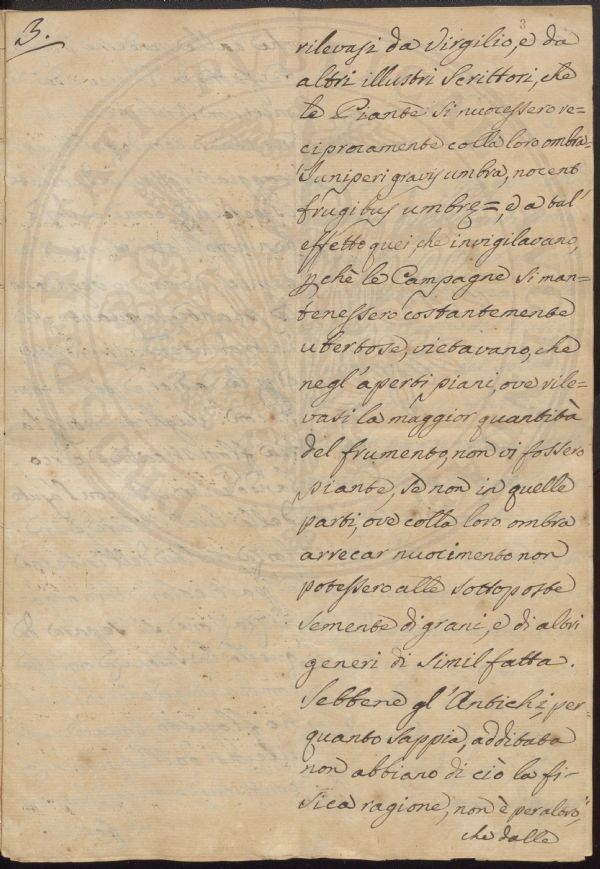 3.
3
rilevasi da Virgilio, e da
altri illustri Scrittori, che
le Piante si nuocessero re=
ciprocamente colla loro ombra=
Juniperi gravis umbra, nocent
frugibus umbrę=, e a tal'
effetto quei, che invigilavano,
pchè le Campagne si man=
tenessero costantemente
ubertose, vietavano, che
negl'aperti piani, ove rile=
vasi la maggior quantità
del frumento, non vi fossero
piante, se non in quelle
parti, ove colla loro ombra
arrecar nuocimento non
potessero alle sottoposte
semente di grani, e di altri
generi di simil fatta.
Sebbene gl'Antichi, per=
quanto sappia, additata
non abbiano di ciò la fi=
sica ragione, non è peraltro,
che dalle